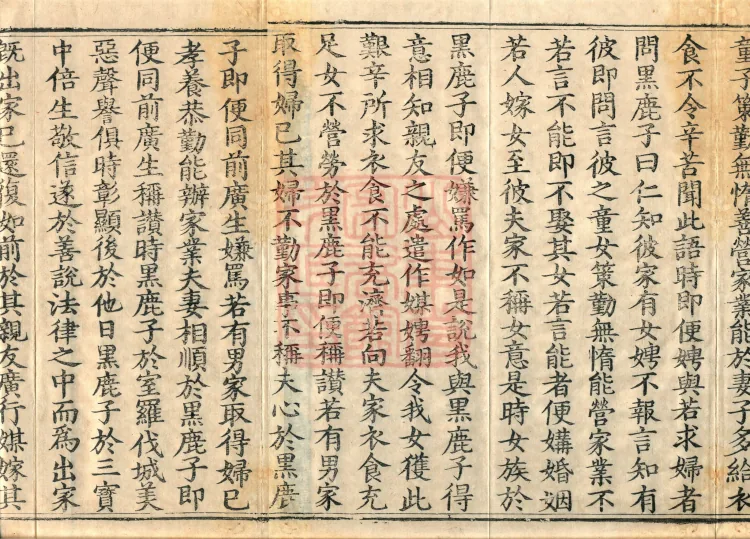 童子策勤無惰善營家業能於妻子多給衣
食不令辛苦聞此語時即便娉與若求婦者
問黑鹿子曰仁知彼家有女娉不報言知有
彼即問言彼之童女策勤無惰能營家業不
若言不能即不娶其女若言能者便媾婚姻
若人嫁女至彼夫家不稱女意是時女族於
黑鹿子即便嫌罵作如是說我與黑鹿子得
意相知親友之處遣作媒娉翻令我女獲此
艱辛所求衣食不能充濟若向夫家衣食充
足女不營勞於黑鹿子即便稱讚若有男家
取得婦已其婦不勤家事不稱夫心於黑鹿
子即便同前廣生嫌罵若有男家取得婦已
孝養恭勤能辦家業夫妻相順於黑鹿子即
便同前廣生稱讚時黑鹿子於室羅伐城美
惡聲譽俱時彰顯後於他日黑鹿子於三寶
中倍生敬信遂於善說法律之中而爲出家
既出家已還復如前於其親友廣行媒嫁其